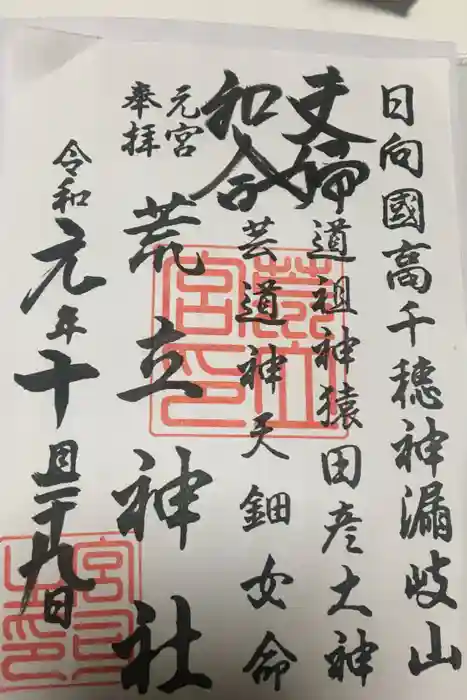 日向國高千穂神漏岐山
夫婦
和合
道祖神猿田彦大神
芸道神天鈿女命
元宮
奉拝
荒立神社
令和元年十月二十九日
荒立宮印
宮司之印